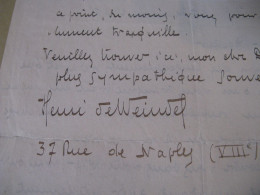 a point, du moins, vous pour
-lument tranquille
Veuillez trouver ici, mon cher D
plus sympathique souve
Henri de Weindel
37 Rue de Naples (VIIIe)